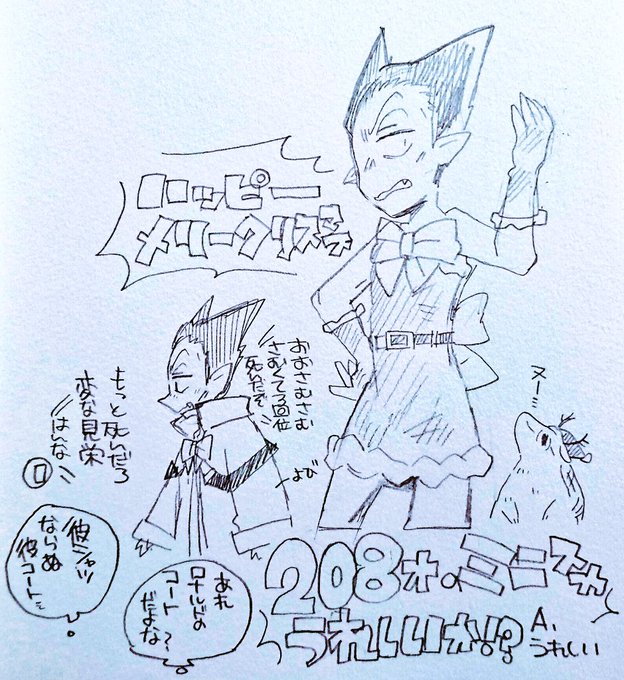 ハッピー
メリークリスマス
おおさむさむ
さむくて3回位
死んだぞ
よび
もっと死んだろ
変な見栄
はんな
ロ
彼シャツ
ならぬ
彼コート
あれ
早いどの
コート
だよな?
ヌー
208才・ミニスカ
うれしいか!?
A.
うれしい